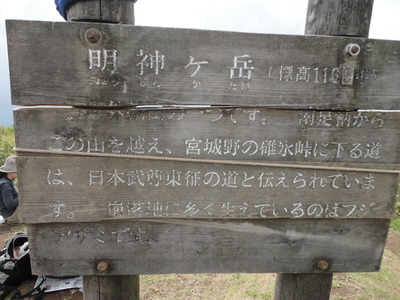 明神ヶ岳（標高116
です。南足柄から
この山を越え、宮城野の碓氷峠に下る道
は、日本武尊東征の道と伝えられていま
す。崩落地に多く生えているのはフジ
アザミです。